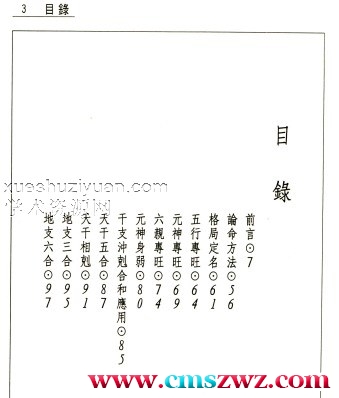 3 目錄
目錄
前言⊙7
論命方法⊙56
格局定名⊙61
五行專旺⊙64
元神專旺⊙69
六親專旺⊙74
元神身弱⊙80
干支沖剋合和應用⊙85
天干五合⊙87
天干相剋⊙91
地支三合⊙95
地支六合⊙97
xueshuziyuan.com
学术资源网
www.cmszwz.com